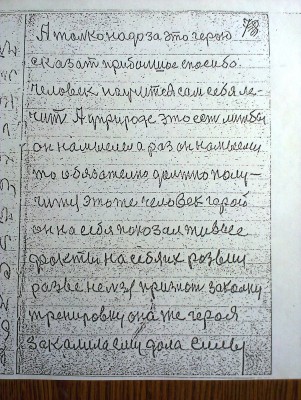 78
А только надо за это герою
сказат прибольшое спосибо.
человек научится сам себя ле-
чит А уприроде это ест
он намыслел а раз он намыслил
то обязателно должно полу-
читц это же человек герой
он на себя показал живые
факты на себя их розвил
разве нелзя признат закалку
тренировку она же героя
закалила ему дала силы